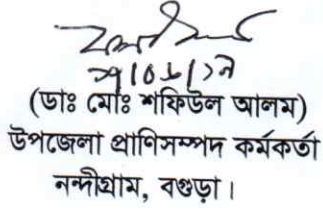 (ডাঃ মোঃ শফিউল আলম)
উপজেলা প্রাণিসম্পদ কর্মকর্তা
নন্দীগ্রাম, বগুড়া।